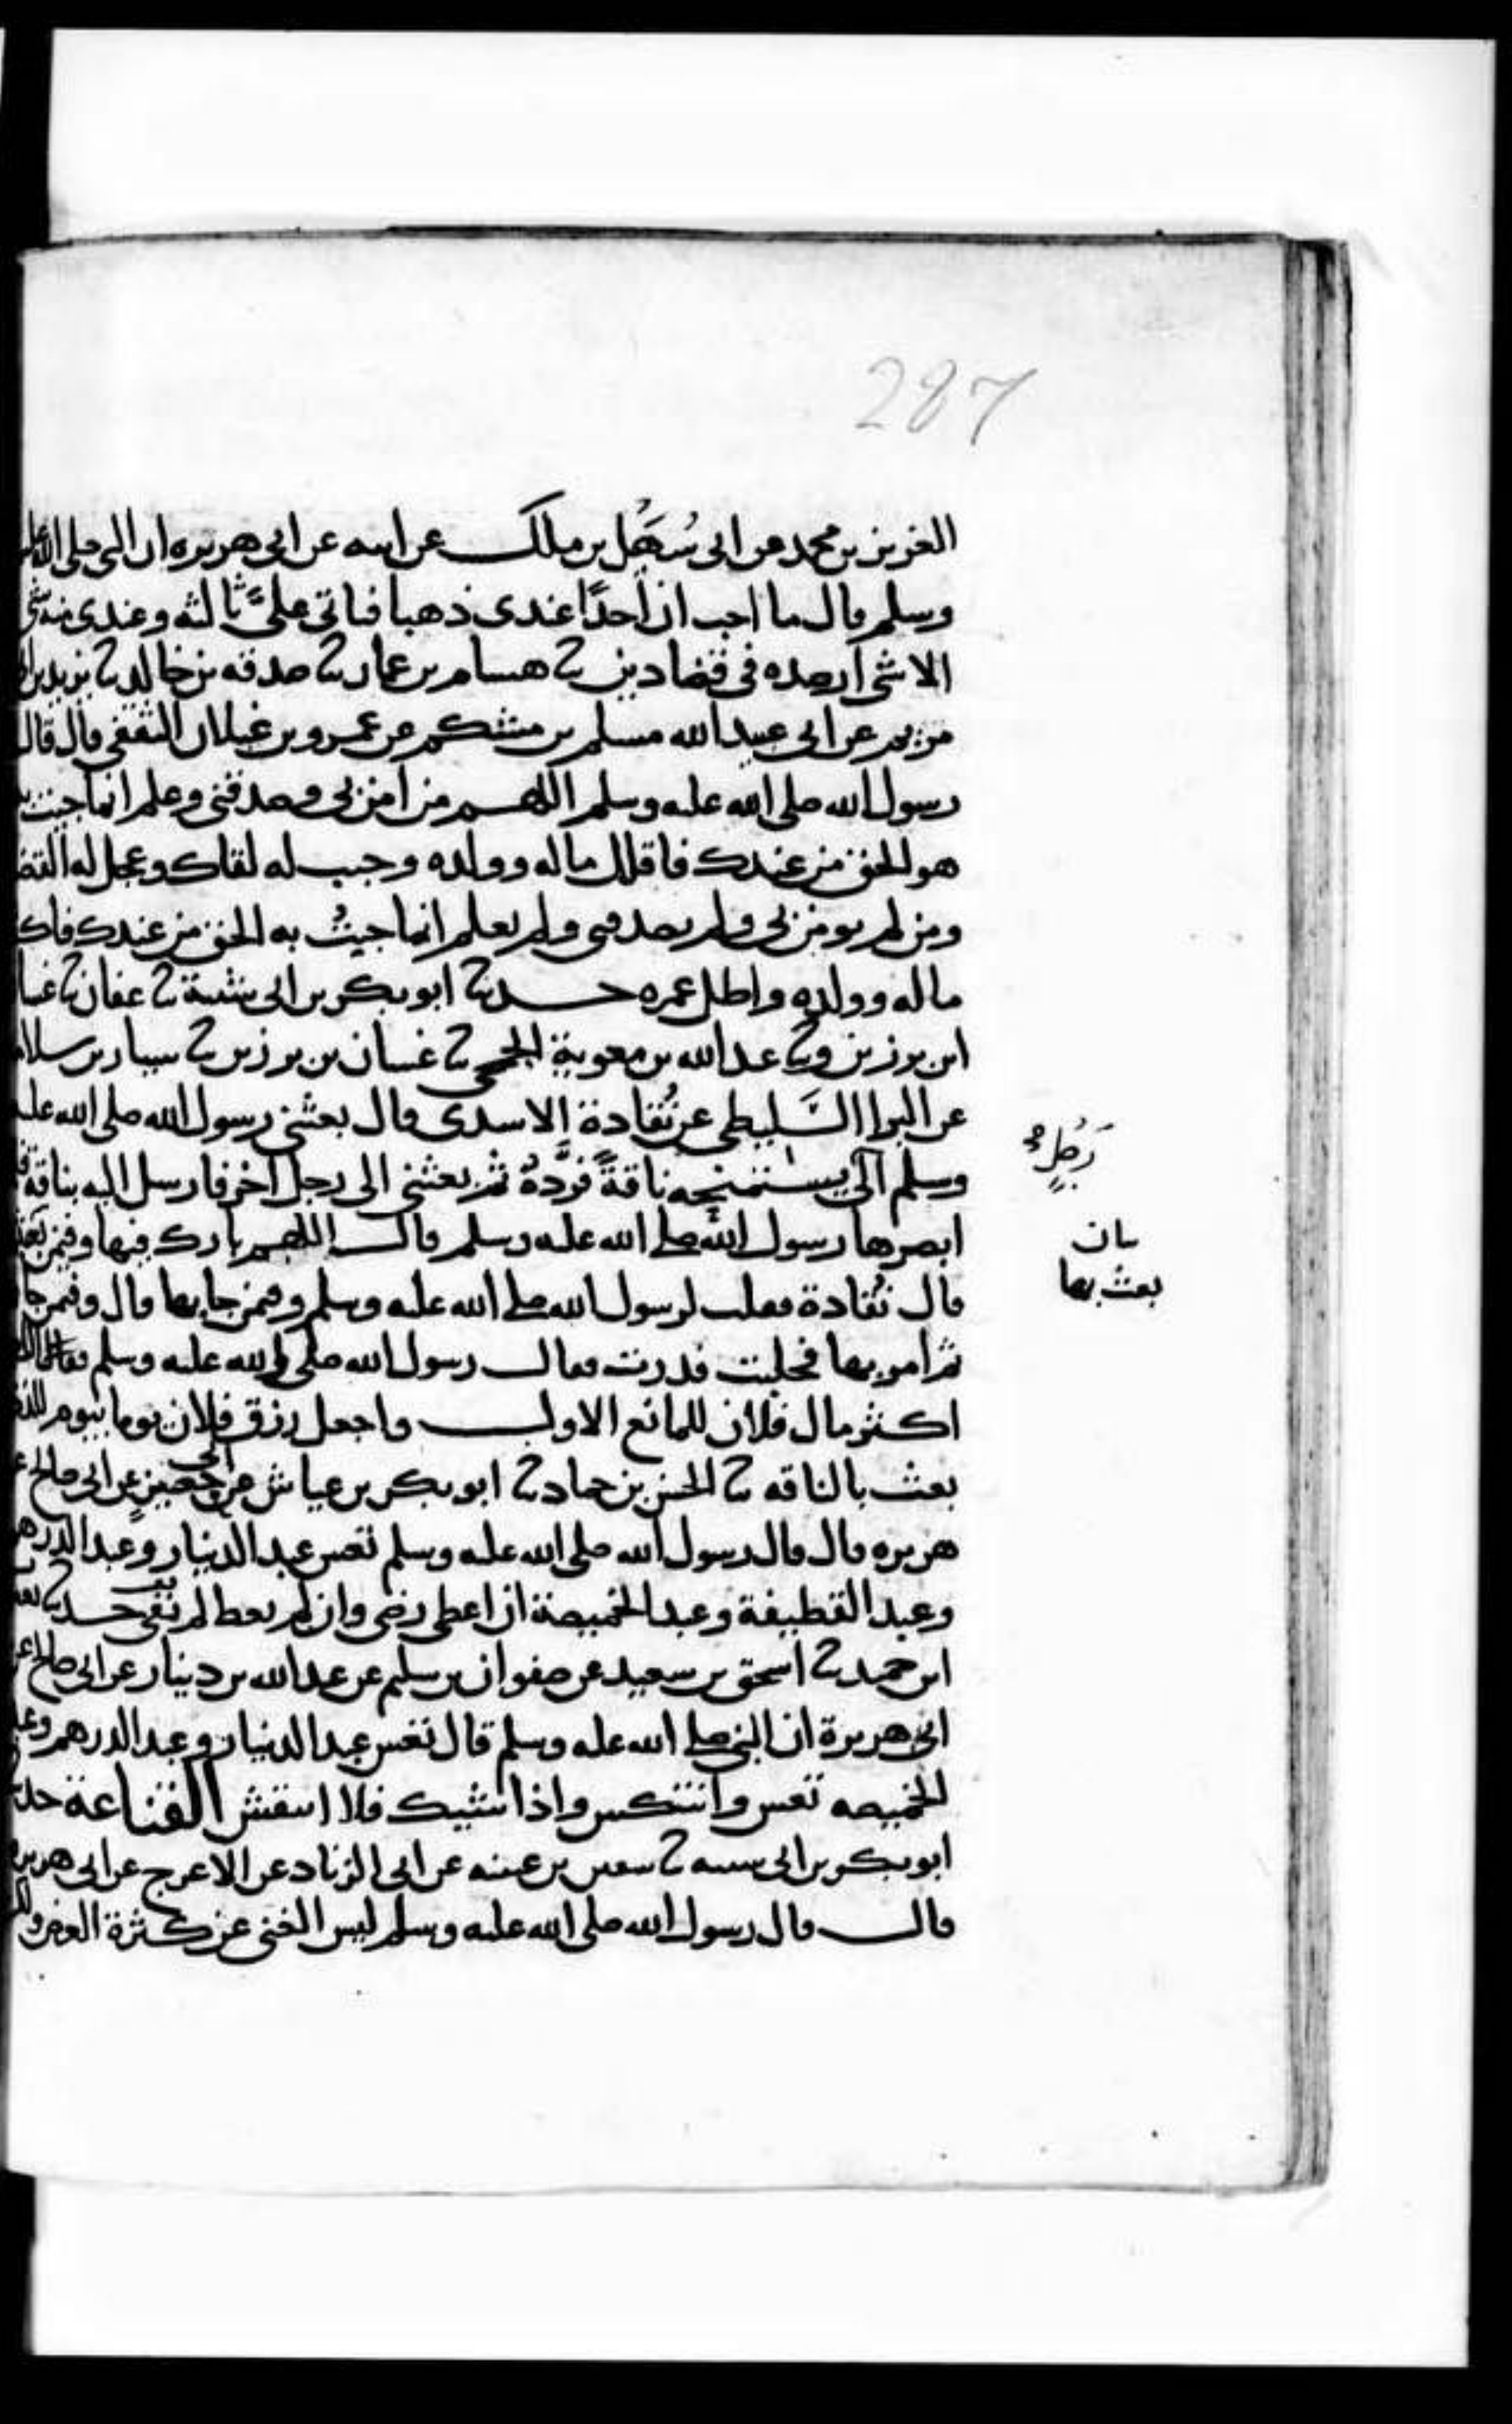 287
العزيز بن محمد عن ابى سُهَيْل بن ملك عن ابيه عن ابى هريره ان النبى صلى الله عليه
وسلم قال ما احب ان اُحدًا عندى ذهبا فتاتى علىَّ ثالثه وعندى منه شى
الا شى ارصده فى قضا دين ثنا هشام بن عمار ثنا صدقه بن خالد ثنا يزيد بن ابى
مريم عن ابى عبيد الله مسلم بن مشكم عن عمرو بن غيلان الثقفى قال قال
رسول الله صلى الله عليه وسلم اللهم من امن بى وصدقنى وعلم انما جئت به
هو الحق من عندك فاقلل ماله وولده وحبب له لقاك وعجل له القضا
ومن لم يومن بى ولم يصدقنى ولم يعلم انما جيتُ به الحق من عندك فاكثر
ماله وولده واطل عمره حدثنا ابو بكر بن ابى شيبة ثنا عفان ثنا غسان
ابن برزين وثنا عبد الله بن معوية الجمحى ثنا غسان بن برزين ثنا سيار بن سلامة
عن البرا السَّليطى عن نُقادة الاسدى قال بعثنى رسول الله صلى الله عليه
وسلم الى يستمنحه ناقةً فردَّهُ ثم بعثنى الى رجل اخر فارسل اليه بناقة فلما
رَجُلٍ
ابصرها رسول الله صلى الله عليه وسلم قال اللهم بارك فيها وفيمن بعث
بعث بها
قال نُقادة فقلت لرسول الله صلى الله عليه وسلم وفيمن جا بها قال وفيمن جا
ثم امر بها فحلبت فدرت فقال رسول الله صلى الله عليه وسلم
اكثر مال فلان للمانع الاول واجعل رزق فلان يوما بيوم للذى
بعث بالناقه ثنا الحسن بن حماد ثنا ابو بكر بن عياش عن ابى حصين عن ابى صالح عن
هريره قال قال رسول الله صلى الله عليه وسلم تعس عبد الدينار وعبد الدرهم
وعبد القطيفة وعبد الخميصة ان اعطى رضى وان لم يعط لم يفى حدثنا يعقوب
ابن حميد ثنا اسحق بن سعيد عن صفوان بن سليم عن عبد الله بن دينار عن ابى صالح عن
ابى هريرة ان النبى صلى الله عليه وسلم قال تعس عبد الدينار وعبد الدرهم وعبد
الخميصه تعس وانتكس واذا شيك فلا انتقش القناعة حدثنا
ابو بكر بن ابى شيبه ثنا سفين بن عيينه عن ابى الزناد عن الاعرج عن ابى هريرة
قال قال رسول الله صلى الله عليه وسلم ليس الغنى عن كثرة العرض ولكن